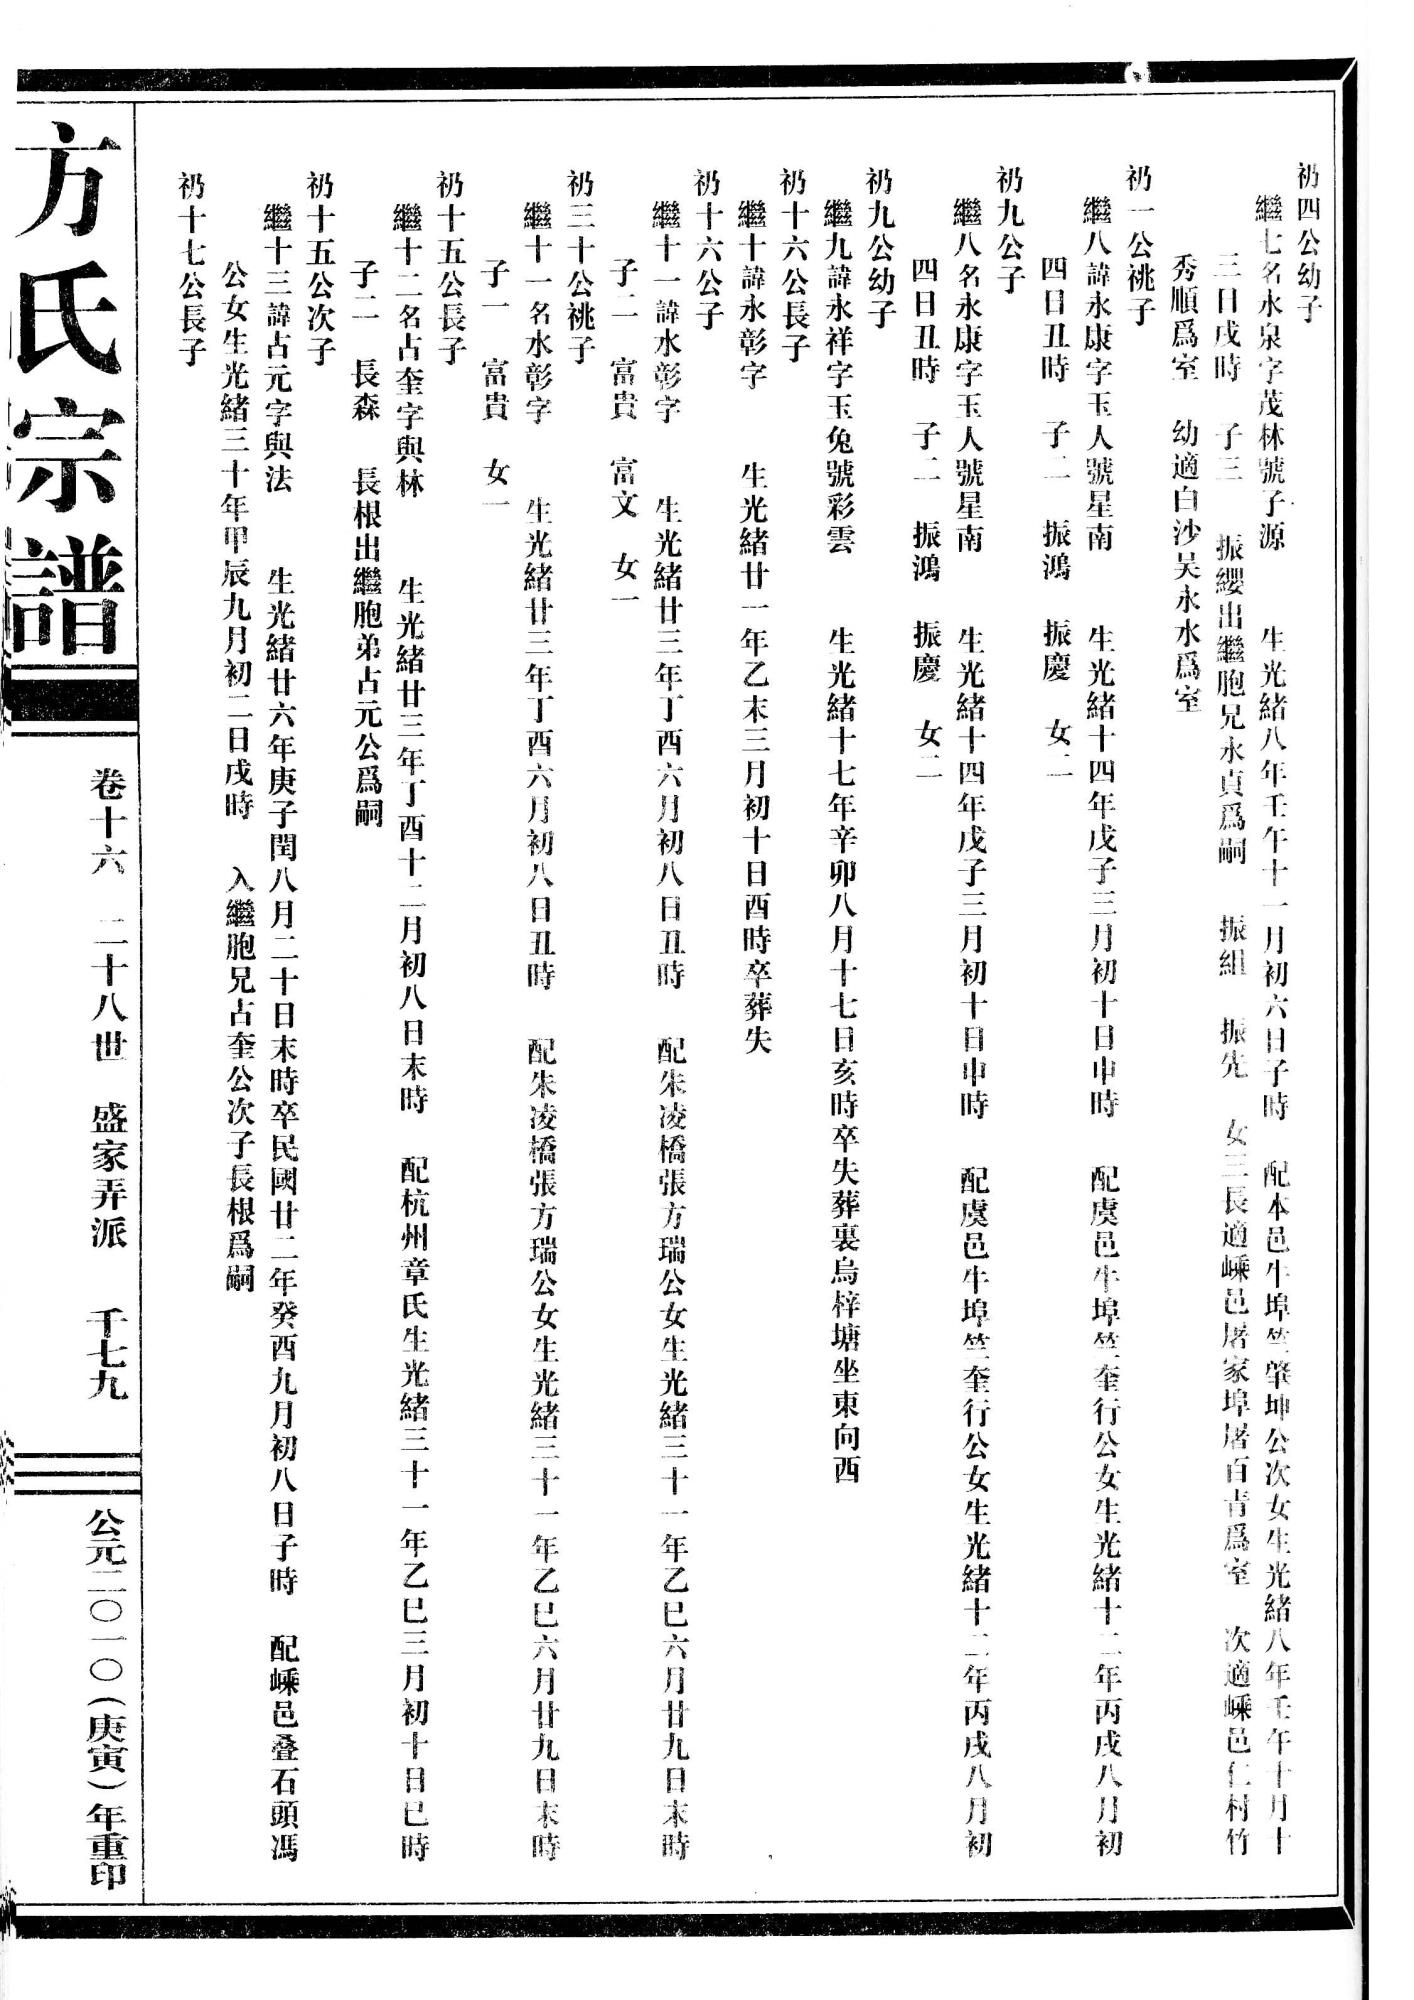 礽四公幼子
繼七名水泉字茂林號子源　生光緒八年壬午十一月初六日子時　配本邑牛埠竺肇坤公次女生光緒八年壬午十月十
三日戌時　子三　振纓出繼胞兄永貞爲嗣　振組　振先　女三長適嵊邑屠家埠屠百青爲室　次適嵊邑仁村竹
秀順爲室　幼適白沙吴永水爲室
礽一公祧子
繼八諱永康字玉人號星南　生光緒十四年戊子三月初十日申時　配虞邑牛埠竺奎行公女生光緒十二年丙戌八月初
四日丑時　子二　振鴻　振慶　女二
礽九公子
繼八名永康字玉人號星南　生光緒十四年戊子三月初十日申時　配虞邑牛埠竺奎行公女生光緒十二年丙戌八月初
四日丑時　子二　振鴻　振慶　女二
礽九公幼子
繼九諱永祥字玉兔號彩雲　生光緒十七年辛卯八月十七日亥時卒失葬裏烏梓塘坐東向西
礽十六公長子
繼十諱永彰字　生光緒廿一年乙未三月初十日酉時卒葬失
礽十六公子
繼十一諱水彰字　生光緒廿三年丁酉六月初八日丑時　配朱凌橋張方瑞公女生光緒三十一年乙巳六月廿九日末時
子二　富貴　富文　女一
礽三十公祧子
繼十一名水彰字　生光緒廿三年丁酉六月初八日丑時　配朱凌橋張方瑞公女生光緒三十一年乙巳六月廿九日末時
子一　富貴　女一
礽十五公長子
繼十二名占奎字與林　生光緒廿三年丁酉十二月初八日末時　配杭州章氏生光緒三十一年乙巳三月初十日巳時
子二　長森　長根出繼胞弟占元公爲嗣
礽十五公次子
繼十三諱占元字與法　生光緒廿六年庚子閏八月二十日末時卒民國廿二年癸酉九月初八日子時　配嵊邑叠石頭馮
公女生光緒三十年甲辰九月初二日戌時　入繼胞兄占奎公次子長根爲嗣
礽十七公長子
方氏宗譜
卷十六　二十八世　盛家弄派　千七九
公元二〇一〇(庚寅)年重印